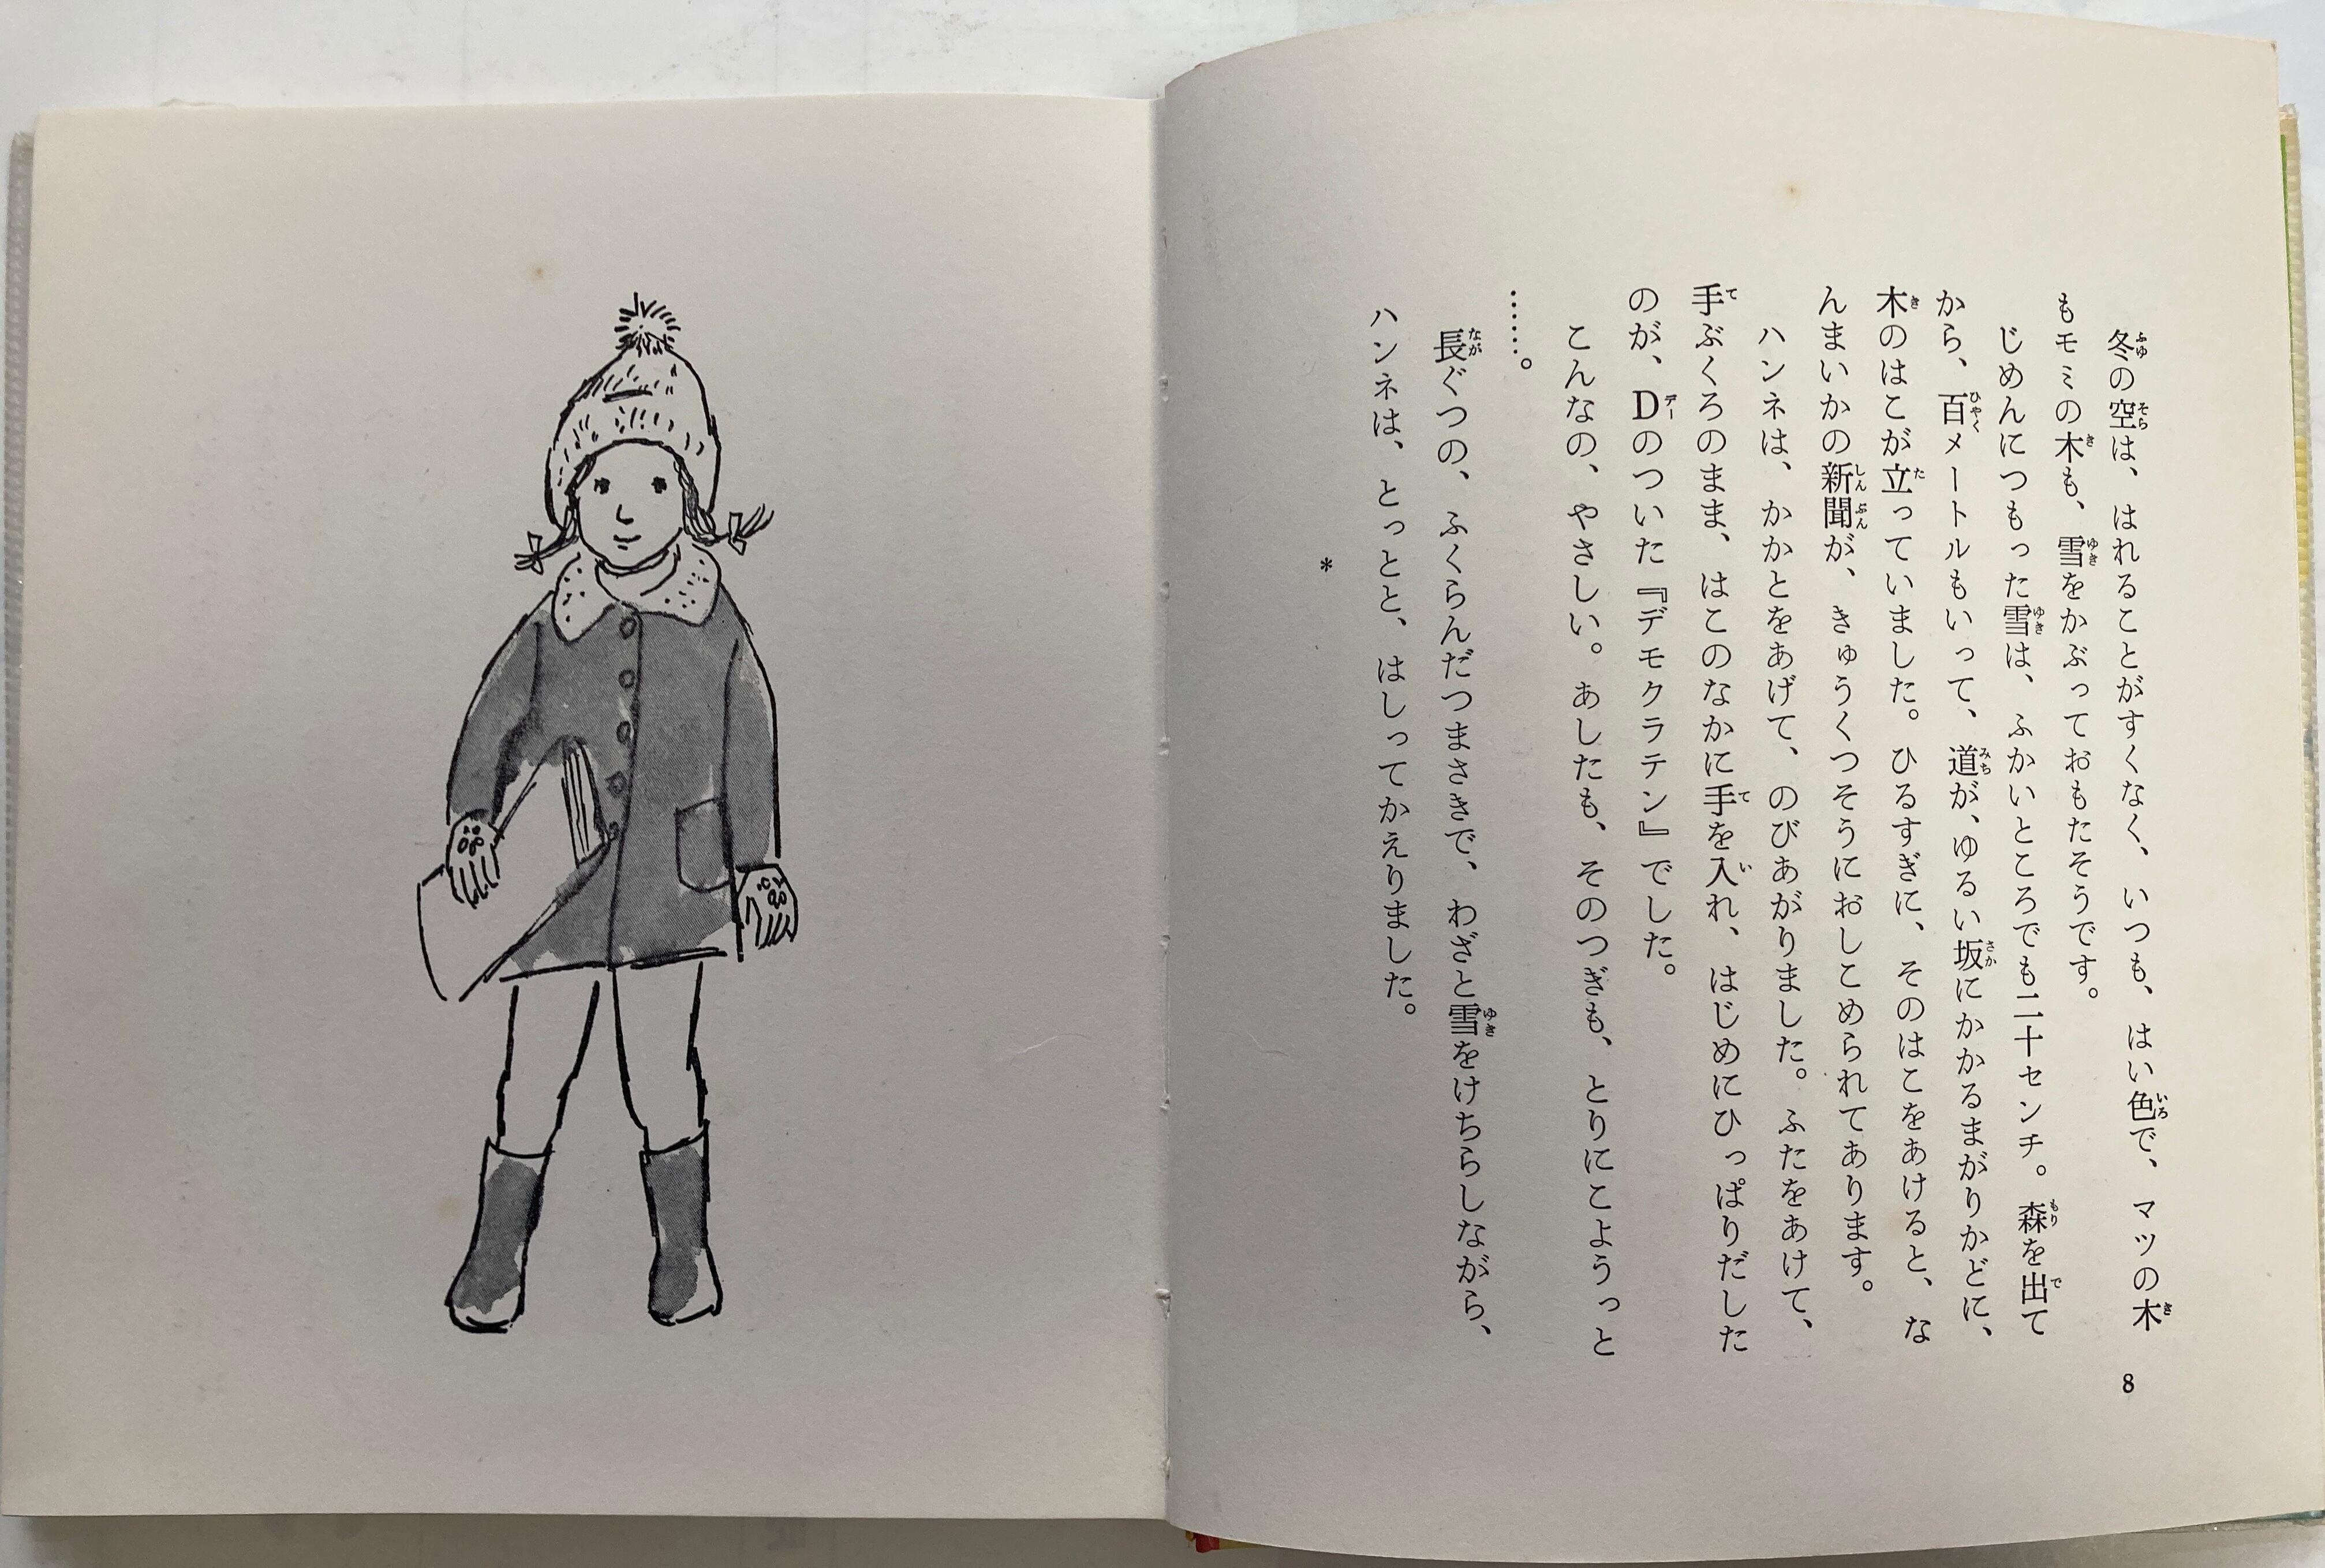 冬の空は、はれることがすくなく、いつも、はい色で、マツの木
もモミの木も、雪をかぶっておもたそうです。
じめんにつもった雪は、ふかいところでも二十センチ。森を出て
から、百メートルもいって、道が、ゆるい坂にかかるまがりかどに、
木のはこが立っていました。ひるすぎに、そのはこをあけると、な
んまいかの新聞が、きゅうくつそうにおしこめられてあります。
ハンネは、かかとをあげて、のびあがりました。ふたをあけて、
手ぶくろのまま、はこのなかに手を入れ、はじめにひっぱりだした
のが、Dのついた『デモクラテン』でした。
こんなの、やさしい。あしたも、そのつぎも、とりにこようっと
……。
長ぐつの、ふくらんだつまさきで、わざと雪をけちらしながら、
ハンネは、とっとと、はしってかえりました。
*
8